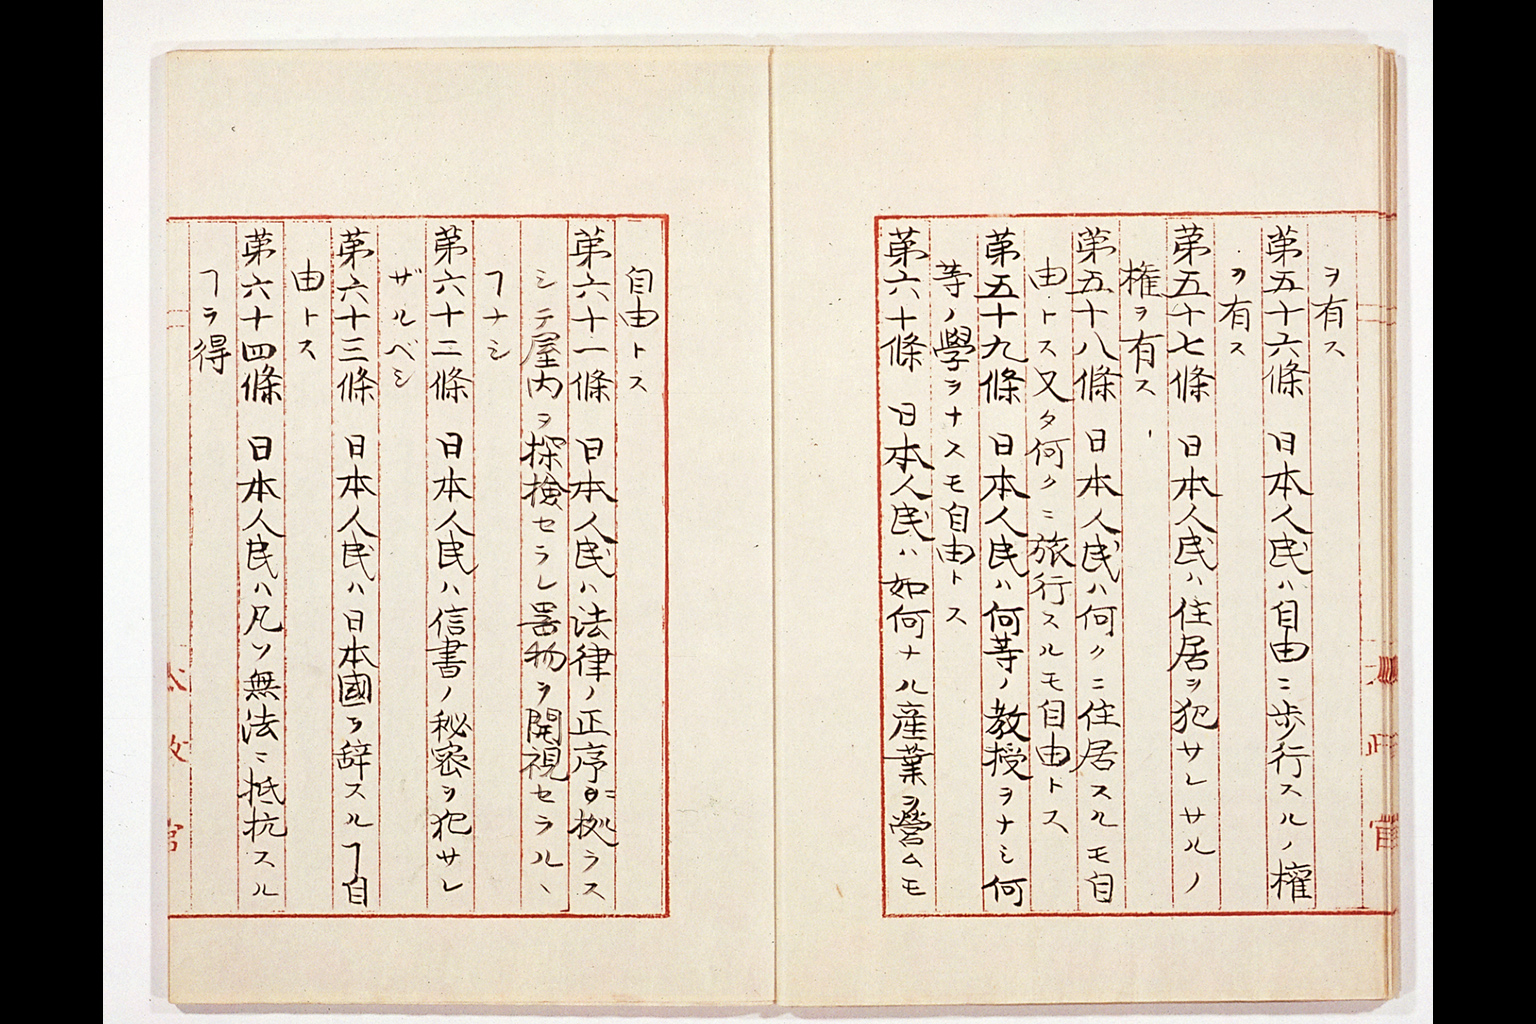 ヲ有ス
第五十六條 日本人民ハ自由ニ歩行スルノ權
ヲ有ス
第五十七條 日本人民ハ住居ヲ犯サレサルノ
權ヲ有ス
第五十八條 日本人民ハ何クニ住居スルモ自
由トス又タ何クニ旅行スルモ自由トス
第五十九條 日本人民ハ何等ノ教授ヲナシ何
等ノ學ヲナスモ自由トス
第六十條 日本人民ハ如何ナル産業ヲ營ムモ
自由トス
第六十一條 日本人民ハ法律ノ正序ニ拠ラス
シテ屋内ヲ探撿セラレ器物ヲ開視セラルヽ
ヿナシ
第六十二條 日本人民ハ信書ノ秘密ヲ犯サレ
ザルベシ
第六十三條 日本人民ハ日本國ヲ辞スルヿ自
由トス
第六十四條 日本人民ハ凡ソ無法ニ抵抗スル
ヿヲ得
太政官